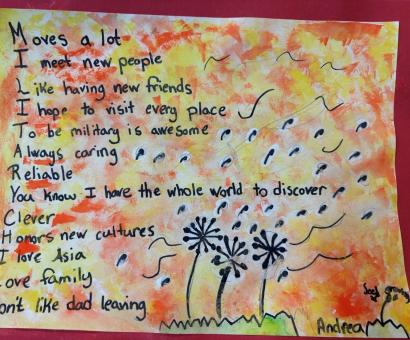 Moves a lot
I meet new people
Like having new friends
I hope to visit every place
To be military is awesome
Always caring
Reliable
You know I have the whole world to discover
Clever
Honors new cultures
I love Asia
Love family
on't like dad leaving
Andreea